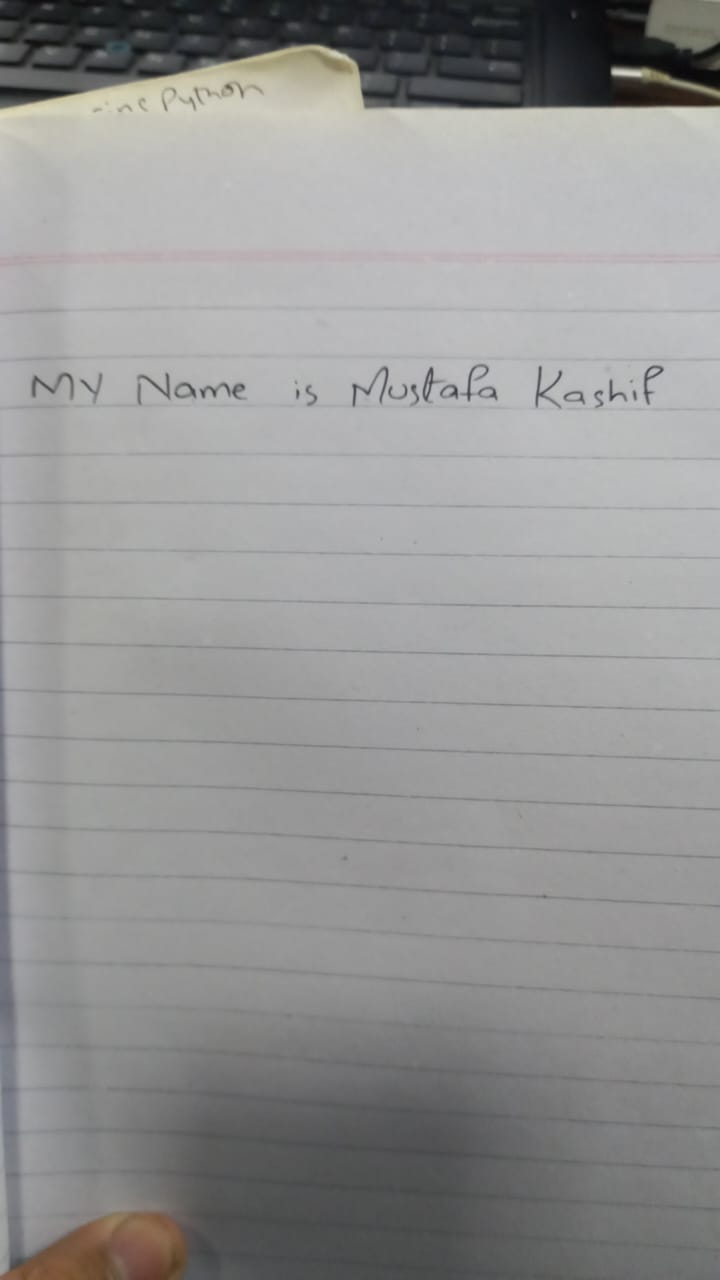 Python
MY Name is Mustafa Kashif